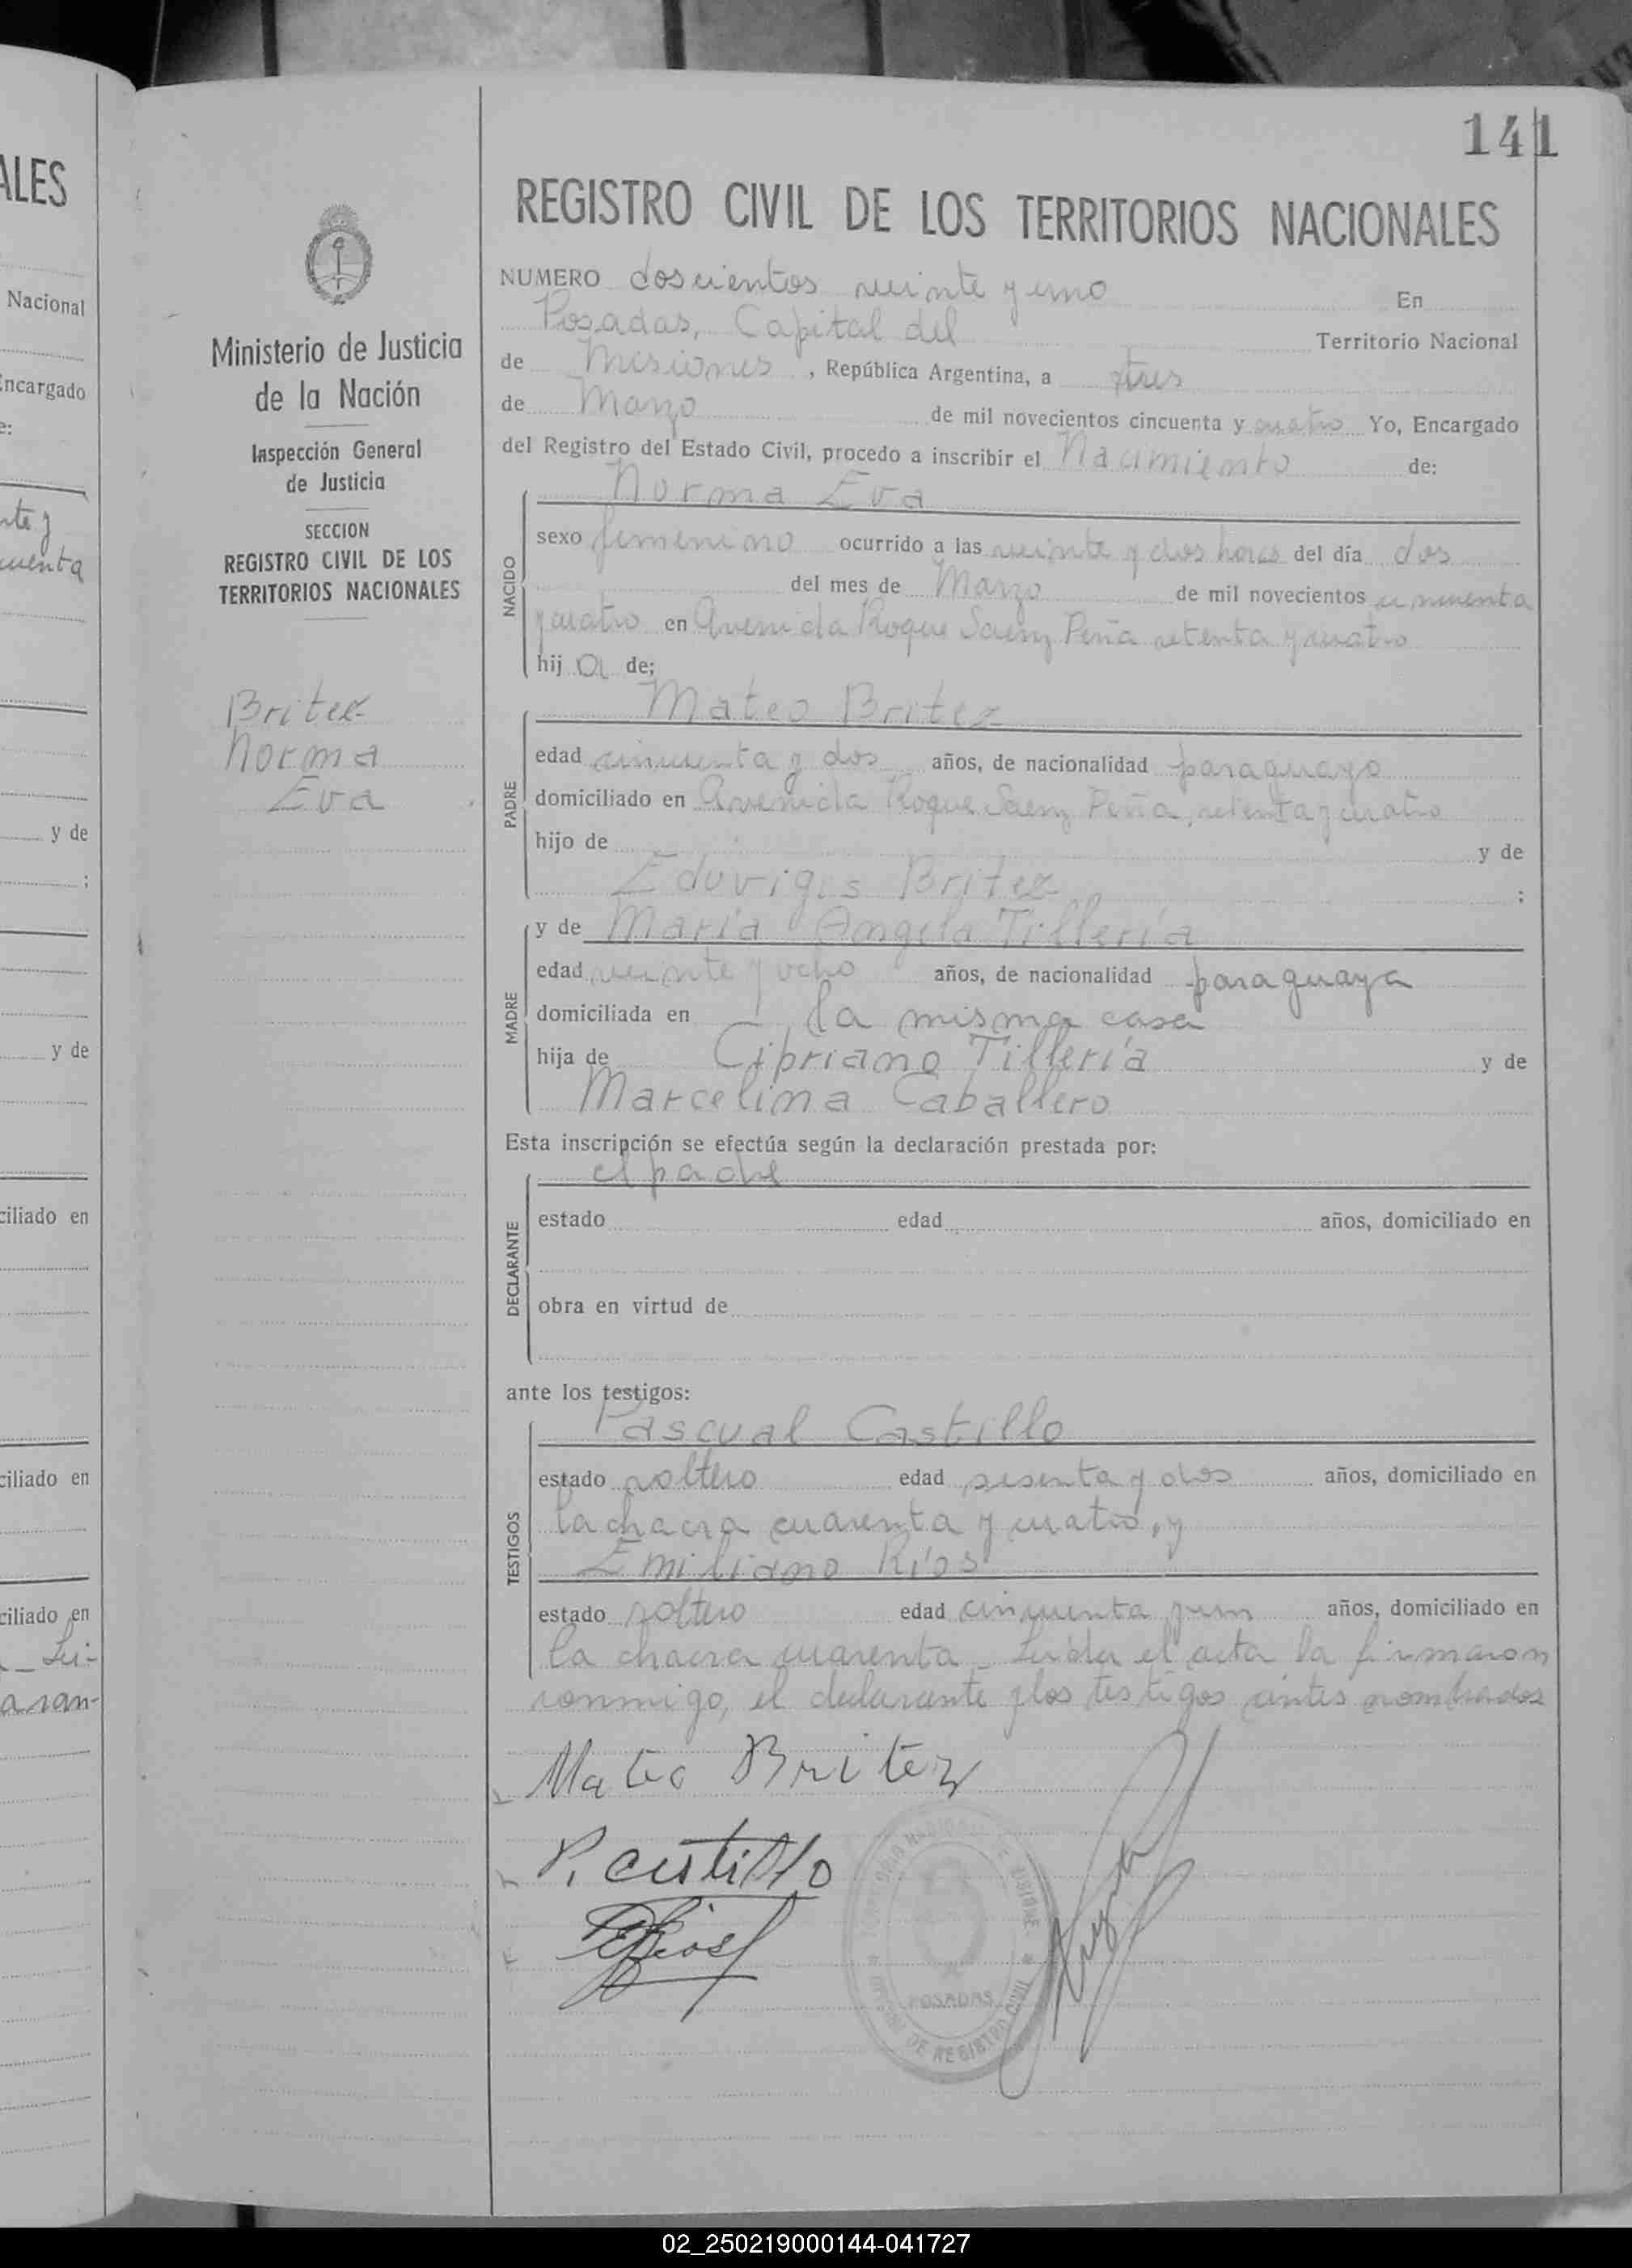 ALES
Nacional
Encargado
e:
nte y
cuenta
y de
;
y de
ciliado en
ciliado en
ciliado en
aran-
141
Ministerio de Justicia
de la Nación
Inspección General
de Justicia
SECCION
REGISTRO CIVIL DE LOS
TERRITORIOS NACIONALES
Britez
Norma
Eva
REGISTRO CIVIL DE LOS TERRITORIOS NACIONALES
NUMERO doscientos veinte y uno En
Posadas, Capital del Territorio Nacional
de Misiones, República Argentina, a tres
de Marzo de mil novecientos cincuenta y cuatro Yo, Encargado
del Registro del Estado Civil, procedo a inscribir el Nacimiento de:
Norma Eva
NACIDO
sexo femenino ocurrido a las veinte y dos horas del día dos
del mes de Marzo de mil novecientos cincuenta
y cuatro en Avenida Roque Saenz Peña setenta y cuatro
hij a de;
Mateo Britez
PADRE
edad cincuenta y dos años, de nacionalidad paraguayo
domiciliado en Avenida Roque Saenz Peña, setenta y cuatro
hijo de y de
Eduvigis Britez ;
y de María Angela Tillería
MADRE
edad veinte y ocho años, de nacionalidad paraguaya
domiciliada en la misma casa
hija de Cipriano Tillería y de
Marcelina Caballero
Esta inscripción se efectúa según la declaración prestada por:
el padre
DECLARANTE
estado edad años, domiciliado en
obra en virtud de
ante los testigos:
Pascual Castillo
TESTIGOS
estado soltero edad sesenta y dos años, domiciliado en
la chacra cuarenta y cuatro, y
Emiliano Ríos
estado soltero edad cincuenta y un años, domiciliado en
la chacra cuarenta_ Leída el acta la firmaron
conmigo, el declarante y los testigos antes nombrados
Mateo Britez
P. castillo
ERios
POSADAS
DE REGISTRO CIVIL
02_250219000144-041727